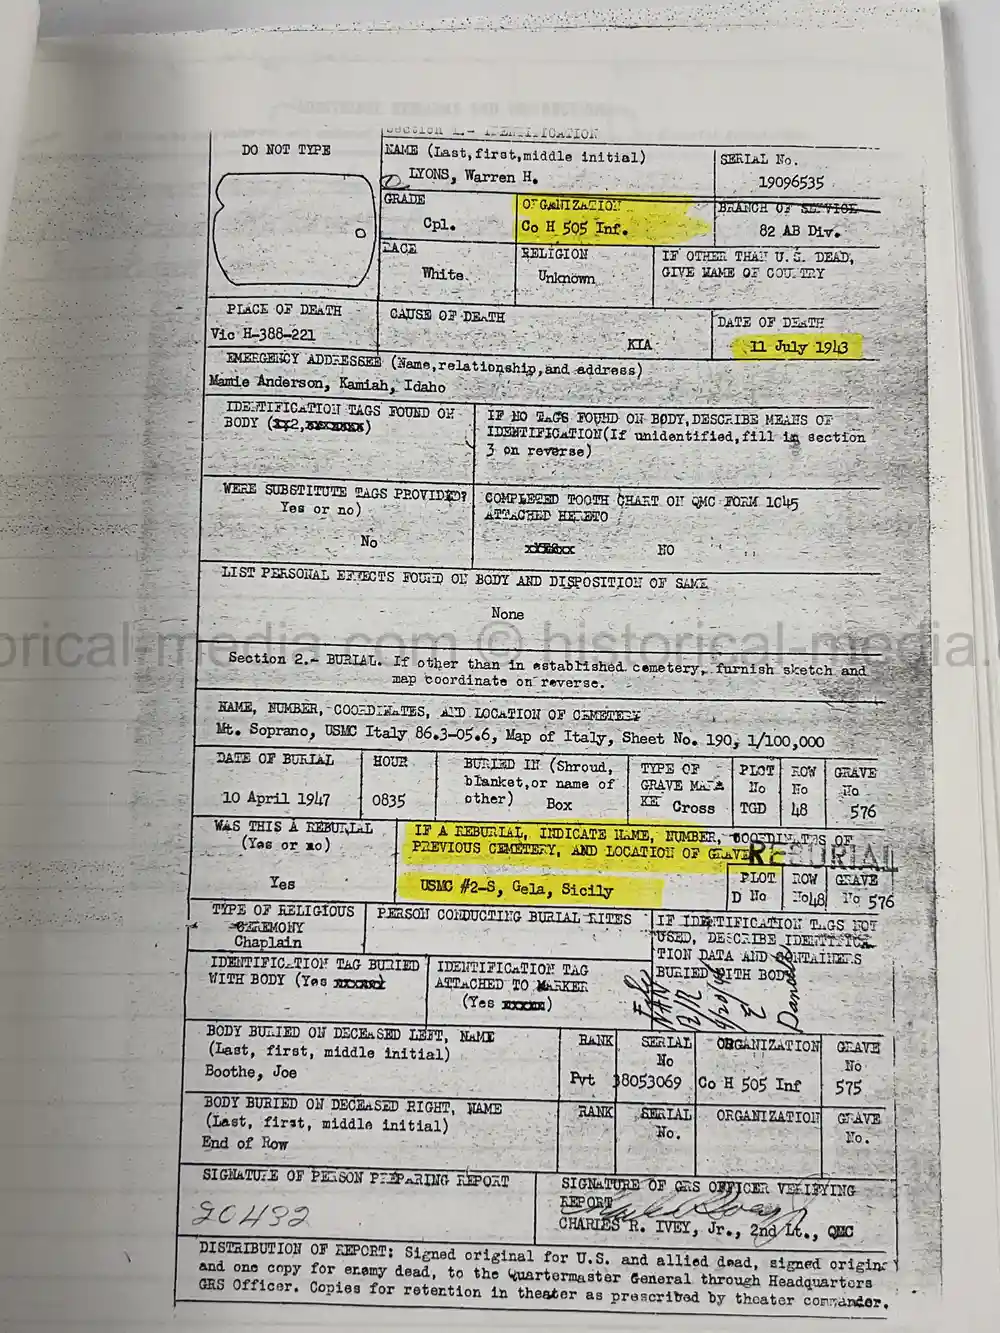 Section 1.- IDENTIFICATION
DO NOT TYPE
NAME (Last,first,middle initial)
LYONS, Warren H.
SERIAL No.
19096535
GRADE
Cpl.
ORGANIZATION
Co H 505 Inf.
BRANCH OF SERVICE
82 AB Div.
RACE
White
RELIGION
Unknown
IF OTHER THAN U.S. DEAD,
GIVE NAME OF COUNTRY
PLACE OF DEATH
Vic H-388-221
CAUSE OF DEATH
KIA
DATE OF DEATH
11 July 1943
EMERGENCY ADDRESSEE (Name,relationship,and address)
Mamie Anderson, Kamiah, Idaho
IDENTIFICATION TAGS FOUND ON
BODY (
2,
)
IF NO TAGS FOUND ON BODY,DESCRIBE MEANS OF
IDENTIFICATION(If unidentified,fill in section
3 on reverse)
WERE SUBSTITUTE TAGS PROVIDED?
Yes or no)
No
COMPLETED TOOTH CHART ON QMC FORM 1045
ATTACHED HERETO
NO
LIST PERSONAL EFFECTS FOUND ON BODY AND DISPOSITION OF SAME
None
orical-media.com © historical-media.
Section 2.- BURIAL. If other than in established cemetery, furnish sketch and
map coordinate on reverse.
NAME, NUMBER, COORDINATES, AND LOCATION OF CEMETERY
Mt. Soprano, USMC Italy 86.3-05.6, Map of Italy, Sheet No. 190, 1/100,000
DATE OF BURIAL
10 April 1947
HOUR
0835
BURIED IN (Shroud,
blanket,or name of
other) Box
TYPE OF
GRAVE MARKER
Cross
PLOT
No
TGD
ROW
No
48
GRAVE
No
576
WAS THIS A REBURIAL
(Yes or no)
Yes
IF A REBURIAL, INDICATE NAME, NUMBER, COORDINATES OF
PREVIOUS CEMETERY, AND LOCATION OF GRAVE
REBURIAL
USMC #2-S, Gela, Sicily
PLOT
D No
ROW
No48
GRAVE
No 576
TYPE OF RELIGIOUS
CEREMONY
Chaplain
PERSON CONDUCTING BURIAL RITES
IF IDENTIFICATION TAGS NOT
USED, DESCRIBE IDENTIFICA
TION DATA AND CONTAINERS
BURIED WITH BODY
IDENTIFICATION TAG BURIED
WITH BODY (Yes
)
IDENTIFICATION TAG
ATTACHED TO MARKER
(Yes
)
BODY BURIED ON DECEASED LEFT, NAME
(Last, first, middle initial)
Boothe, Joe
RANK
Pvt
SERIAL
No
38053069
ORGANIZATION
Co H 505 Inf
GRAVE
No
575
BODY BURIED ON DECEASED RIGHT, NAME
(Last, first, middle initial)
End of Row
RANK
SERIAL
No.
ORGANIZATION
GRAVE
No.
SIGNATURE OF PERSON PREPARING REPORT
20432
SIGNATURE OF GRS OFFICER VERIFYING
REPORT
CHARLES R. IVEY, Jr., 2nd Lt., QMC
DISTRIBUTION OF REPORT: Signed original for U.S. and allied dead, signed origin
and one copy for enemy dead, to the Quartermaster General through Headquarters
GRS Officer. Copies for retention in theater as prescribed by theater commander.